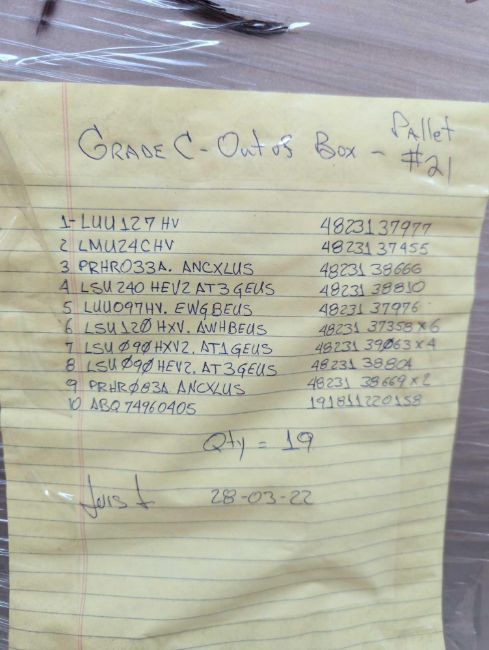 GRADE C - Out of Box - Pallet #21
1- LUU127 HV 48231 37977
2 LMU24CHV 48231 37455
3 PRHR033A. ANCXLUS 48231 38666
4 LSU240 HEV2 AT3GEUS 48231 38810
5 LUU097HV. EWGBEUS 48231 37976
6 LSU12Ø HXV. AWHBEUS 48231 37358 x 6
7 LSU Ø9Ø HXV2. AT1GEUS 48231 39Ø63 x 4
8 LSU Ø9Ø HEV2. AT3GEUS 48231 38804
9 PRHRØ83A ANCXLUS 48231 38669 x 2
10 ABQ 74960405 191811220158
Qty = 19
Luis L 28-03-22